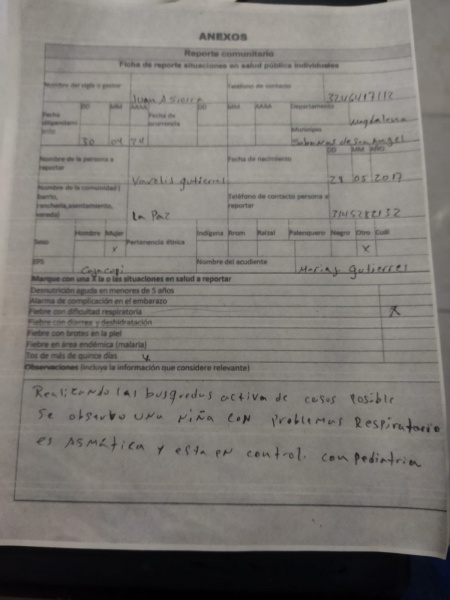 ANEXOS
Reporte comunitario
Ficha de reporte situaciones en salud pública individuales
Nombre del vigía o gestor Juan A Sierra Teléfono de contacto
DD MM AAAA DD MM AAAA Departamento Magdalena
Fecha Fecha de ocurrencia Municipio
30 04 24 Sabanas de San Angel
DD MM AÑO
Nombre de la persona a reportar Gutierrez Fecha de nacimiento 28 05 2017
Nombre de la comunidad ( barrio, ranchería, asentamiento, vereda) La Paz Teléfono de contacto persona a reportar
Hombre Mujer Indígena Rrom Raizal Palenquero Negro Otro Cuál
Sexo x Pertenencia étnica x
EPS Cajacopi Nombre del acudiente Gutierrez
Marque con una X la o las situaciones en salud a reportar
Desnutrición aguda en menores de 5 años
Alarma de complicación en el embarazo
Fiebre con dificultad respiratoria x
Fiebre con diarrea y deshidratación
Fiebre con brotes en la piel
Fiebre en área endémica (malaria)
Tos de más de quince días x
Observaciones (incluya la información que considere relevante)
Realizando las busquedas activa de casos posible
se observo una niña con problemas Respiratorio
es asmática y esta en control. con pediatria